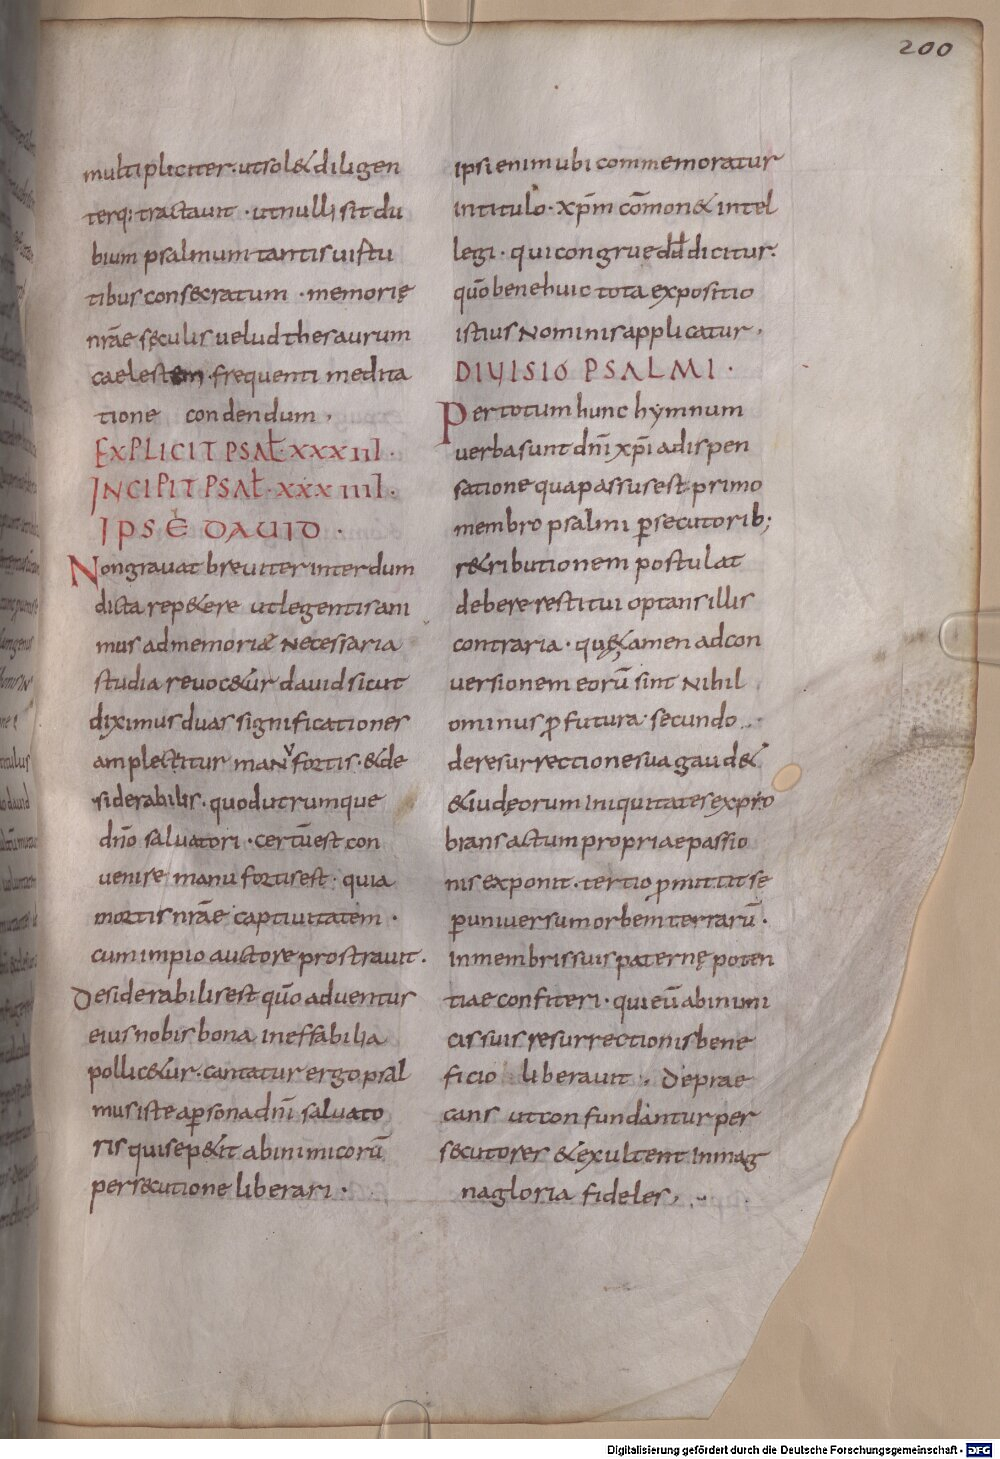 200
multipliciter · ut sol& diligen
terq; tractauit · ut nulli sit du
bium psalmum tantis uirtu
tibus consecratum · memorię
nr̄ae sęculis uelud thesaurum
caelestem · frequenti medita
tione condendum ,
EXPLICIT PSAL̄ · XXXIII ·
INCIPIT PSAL̄ · XXXIIII ·
IPSE DAUID ·
Non grauat breuiter interdum
dicta rep&ere ut legentis ani
mus ad memoriae necessaria
studia reuoc&ur dauid sicut
diximus duas significationes
amplectitur manu fortis · & de
siderabilis · quod utrumque
dn̄o saluatori · certū est con
uenire manu fortis est · quia
mortis nr̄ae captiuitatem ·
cum impio auctore prostrauit ·
Desiderabilis est quō aduentus
eius nobis bona ineffabilia
pollic&ur · cantatur ergo psal
mus iste a p̱sona dn̄i saluato
ris qui sep&it ab inimicorū
persecutione liberari ·
ipsi enim ubi commemoratur
in titulo · xp̄m cōmon& intel
legi · qui congrue dd̄ dicitur ·
quō bene huic tota expositio
istius nominis applicatur ·
DIUISIO PSALMI ·
Per totum hunc hymnum
uerba sunt dn̄i xp̄i a dispen
satione qua passus est · primo
membro psalmi p̱secutorib;
r&ributionem postulat
debere restitui optans illis
contraria · quę tamen ad con
uersionem eorū sint nihil
ominus p̱futura · secundo
de resurrectione sua gaud&
& iudęorum iniquitates expro
brans actum propriae passio
nis exponit · tertio p̱mittit se
p̱ uniuersum orbem terrarū ·
in membris suis paternę poten
tiae confiteri · qui eū ab inimi
cis suis resurrectionis bene
ficio liberauit · Depræ
cans ut confundantur per
secutores & exultent in mag
na gloria fideles ·
Digitalisierung gefördert durch die Deutsche Forschungsgemeinschaft - DFG